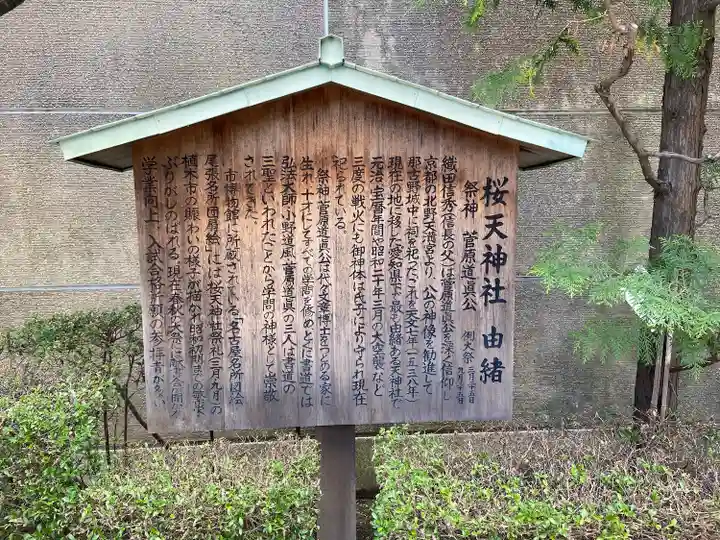 桜天神社 由緒
祭神 菅原道真公
例大祭 三月二十五日
九月二十五日
織田信秀(信長の父)は菅原道真公を深く信仰し
京都の北野天満宮より、公の神像を勧進して
那古野城中に祠を祀ったこれを天文七年(一五三八年)
現在の地に移した愛知県下最も由緒ある天神社で
元治、宝暦年間や昭和二十年三月の大空襲など
三度の戦火にも御神体は氏子により守られ現在
祀られている。
祭神菅原道真公は代々文章博士をつとめる家に
生れ十六才にしてすべての学問を修めことに書道では
弘法大師、小野道風、菅原道真の三人は書道の
三聖といわれたことから学問の神様として崇敬
されてきた。
市博物館に所蔵されている「名古屋名所図絵
尾張名所図絵」には桜天神社祭礼三月九月の
植木市の賑わいの様子が描かれ昭和初期までの繁栄
ぶりがしのばれる。現在春秋の大祭に
学業向上、入試合格祈願の参拝者が多い